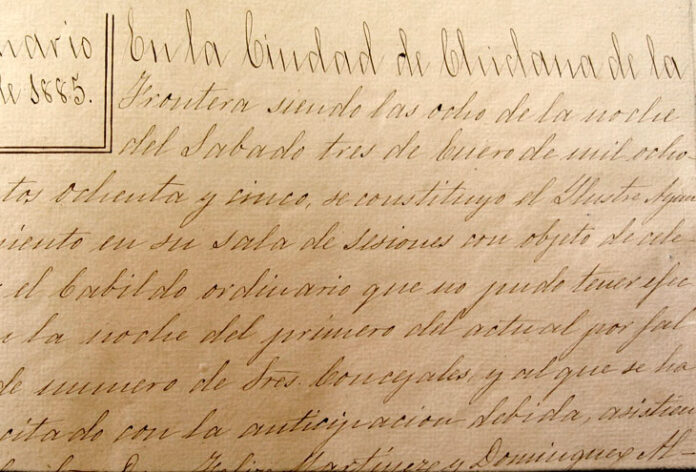 nario
de 1885.
En la Ciudad de Chiclana de la
Frontera siendo las ocho de la noche
del Sabado tres de Enero de mil ocho
tos ochenta y cinco, se constituyo el Ilustre Ayun
miento en su sala de sesiones con objeto de cele
el Cabildo ordinario que no pudo tener efec
n la noche del primero del actual por fal
de numero de Sres. Concejales, y al que se ha
citado con la anticipacion debida, asistien
Martinez y Dominguez Al-